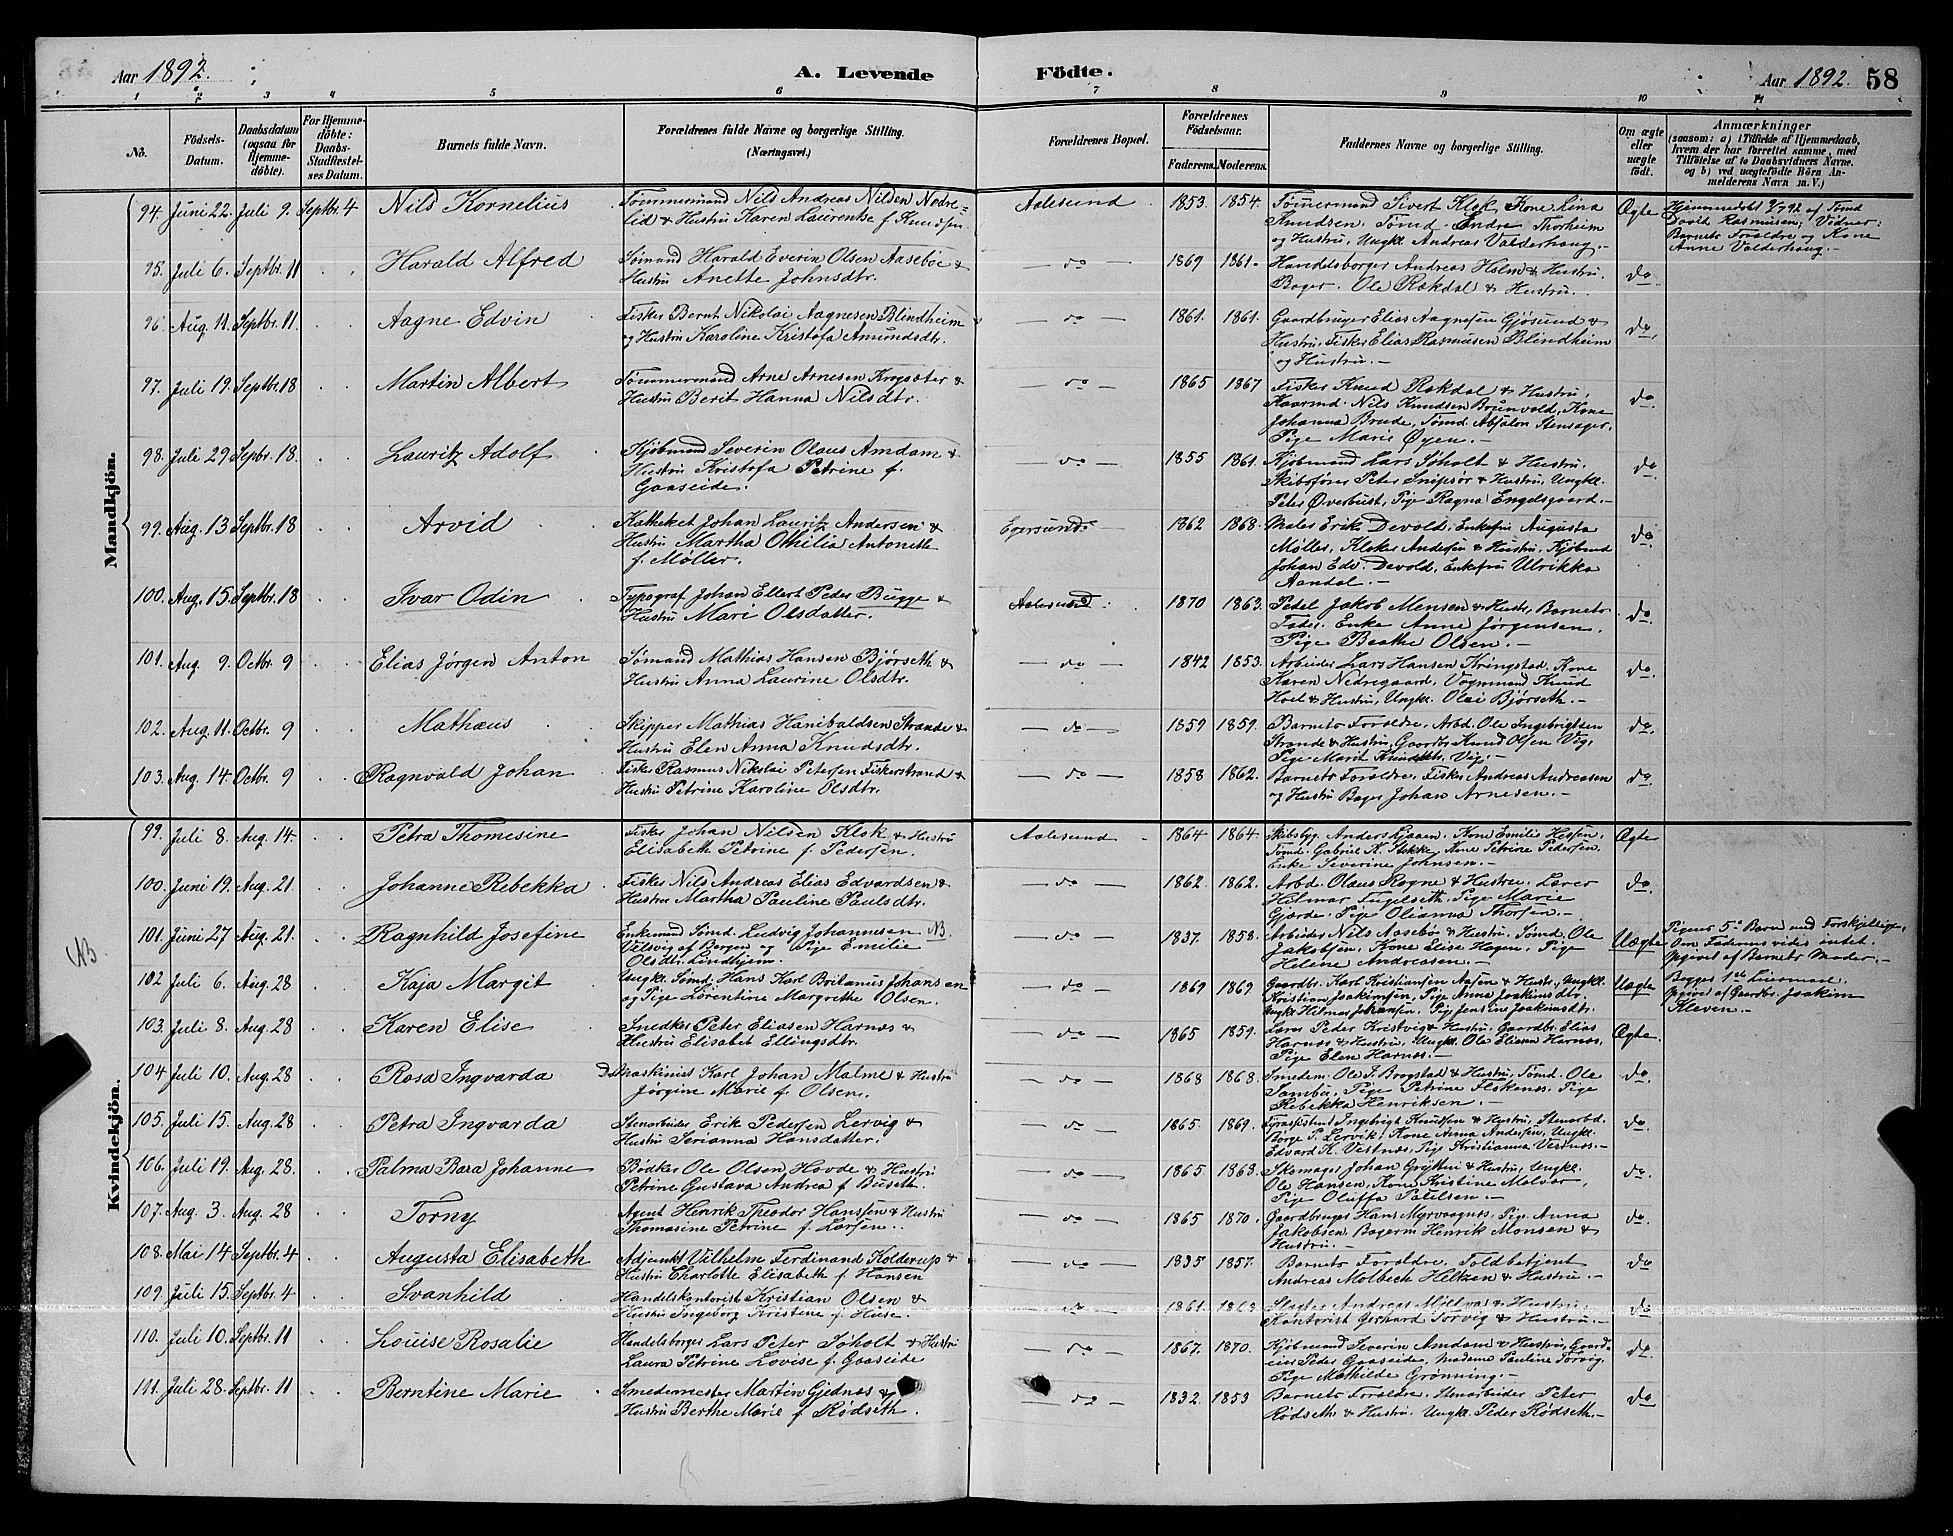 Aar 1892. A. Levende Födte. Aar 1892. 58
1 2 3 4 5 6 7 8 9 10 11
No. Födsels-Datum. Daabsdatum (ogsaa for Hjemmedöbte). For Hjemmedöbte: Daabs-Stadfæstelses Datum. Barnets fulde Navn. Forældrenes fulde Navne og borgerlige Stilling. (Næringsvei.) Forældrenes Bopæl. Forældrenes Födselsaar. Faderens. Moderens. Faddernes Navne og borgerlige Stilling. Om ægte eller uægte födt. Anmærkninger (saasom: a) i Tilfælde af Hjemmedaab, hvem der har forrettet samme, med Tilföielse af to Daabsvidners Navne. og b) ved uægtefödte Börn Anmelderens Navn m. V.)
Mandkjön.
94. Juni 22. Juli 9. Septbr. 4 Nils Kornelius Tømmermand Nils Andreas Nilsen Nedre- Aalesund 1853. 1854. Tømmermand Sivert Klok, Kone Lina Ægte Hjemmedøbt 9/7 92 af Tømd
lid & Hustru Karen Laurentse f. Knudsen. Knudsen. Tømd. Endre Thorheim David Rasmussen, Vidner:
og Hustru, Ungkl. Andreas Valderhaug. Barnets Forældre og Kone
Anne Valderhaug.
95. Juli 6. Septbr. 11 Harald Alfred Sømand Harald Everin Olsen Aasebøe & do 1869 1861. Handelsborger Andreas Holm & Hustru. do
Hustru Anette Johnsdtr. Bager Ole Rokdal & Hustru.
96. Aug. 11. Septbr. 11. Aagne Edvin Fisker Bernt Nikolai Aagnesen Blindheim do 1861. 1861. Gaardbruger Elias Aagnesen Gjøsund & do
og Hustru Karoline Kristofa Amundsdtr. Hustru, Fisker Elias Rasmusen Blindheim
og Hustru.
97. Juli 19. Septbr. 18 Martin Albert Tømmermand Arne Arnesen Krogsæter & do 1865 1867 Fisker Knud Rokdal & Hustru, do
Hustru Berit Hanna Nilsdtr. Nils Knudsen Kone
Johanna Brude, Tømd. Absalon Stensager.
Pige Marie Øyen.
98. Juli 29 Septbr. 18. Lauritz Adolf Kjøbmand Severin Olaus Amdam & do 1855 1861. Kjøbmand Lars Søholt & Hustru. do
Hustru Kristofa Petrine f. Skibsfører Peter & Hustru, Ungkl.
Gaaseide. Peter Øverbust, Pige Ragna Engelsgaard.
99. Aug. 13 Septbr. 18 Arvid Katheket Johan Lauritz Andersen & Egersund 1862 1868. Maler Erik Devold. Enkefru Augusta do
Hustru Martha Othilia Antonette Møller, Klokker Andersen & Hustru, Kjøbmd
f. Møller. Johan Edv. Devold. Enkefru Ulrikka
Aandal.
100. Aug. 15 Septbr. 18 Ivar Odin Typograf Johan Ellert Peder Bugge & Aalesund 1870 1863. Pedel Jakob Monsen & Hustr, Barnets do
Hustru Mari Olsdatter. Fader. Enke Anne Jørgensen.
Pige Beathe Olsen.
101. Aug. 9. Octbr. 9 Elias Jørgen Anton Sømand Mathias Hansen Bjørseth & do 1842 1853. Arbeider Lars Hansen Kringstad. Kone do
Hustru Anna Laurine Olsdtr. Karen Nedregaard, Vognmand Knud
Hoel & Hustru, Ungkl. Olai Bjørseth.
102. Aug. 11. Octbr. 9 Mathæus Skipper Mathias Hanibaldsen Strande & do 1859 1859. Barnets Forældre, Arbd. Ole Ingebrigtsen do
Hustru Elen Anna Knudsdtr. Strande & Hustru, Gaardbr Knud Olsen Vig,
Pige Marit Knudsdtr. Vig.
103. Aug. 14 Octbr. 9 Ragnvald Johan Fisker Rasmus Nikolai Petersen Fiskerstrand & do 1858 1862. Barnets Forældre, Fisker Andreas Andreasen do
Hustru Petrine Karoline Olsdtr. og Hustru Bager Johan Arnesen.
Kvindekjön.
99. Juli 8. Aug. 14. Petra Thomesine Fisker Johan Nilsen Klok & Hustru Aalesund 1864 1864. Skibsbyg. Anders Liaaen. Kone Emilie Hessen. Ægte
Elisabeth Petrine f. Pedersen. Tømd. Gabriel K. Stokke, Kone Petrine Pedersen.
Enke Severine Johnsen.
100. Juni 19. Aug. 21. Johanne Rebekka Fisker Nils Andreas Elias Edvardsen & do 1862. 1862. Arbd. Olaus Rogne & Hustru. Lærer do
Hustru Martha Pauline Paulsdtr. Hilmar Engelseth. Pige Marie
Gjørde. Pige Olianna Thorsen.
NB.
101. Juni 27 Aug. 21. Ragnhild Josefine Enkemand Sømd. Ludvig Johannesen NB. do 1837. 1858. Arbeider Nils Aasebø & Hustru. Tømd. Ole Uægte Pigens 5te Barn med Forskjellige.
Velsvig af Borgen og Pige Emilie Jakobsen, Kone Elise Hagen, Pige Om Faderens vides intet.
Olsdtr. Lindhjem. Helene Andreasen. Opgivet af Barnets Moder.
102 Juli 6. Aug. 28 Kaja Margit Ungkl. Sømd. Hans Karl Britanus Johansen do 1869 1869. Gaardbr. Karl Kristiansen Aasen & Hustr, Ungkl. Uægte Begges 1ste Leiermaal.
og Pige Lorentine Margrethe Olsen. Kristian Joakimsen, Pige Anna Joakimsdtr. Opgivet af Gaardbr. Joakim
Ungkl. Hilmar Johansen, Pige Jensine Joakimsdtr. Kleven.
103. Juli 8. Aug. 28 Karen Elise Snedker Peter Eliasen Harnæs & do 1865 1859. Lærer Peder Kristvig & Hustru. Gaardbr. Elias Ægte.
Hustru Elisabet Ellingsdtr. Harnæs & Hustru, Ungkl. Ole Eliasen Harnæs.
Pige Elen Harnæs.
104 Juli 10. Aug. 28 Rosa Ingvarda Maskinist Karl Johan Malme & Hustru do 1868 1868. Smedem. Ole J. Brogstad & Hustru, Tømd. Ole do
Jørgine Marie f. Olsen. Pige Petrine Flskenes, Pige
Rebekka Henriksen.
105. Juli 15. Aug. 28 Petra Ingvarda Stenarbeider Erik Pedersen Lervig & do 1865 1869. Fyrassistent Ingebrigt Knudsen & Hustru, Stenarbd. do
Hustru Serianna Hansdatter. Børge P. Lervik, Kone Anna Andersen, Ungkl.
Edvard K. Vestnes, Pige Kristianna Vestnes.
106. Juli 19. Aug. 28. Palma Bara Johanne Bødker Ole Olsen Hovde & Hustru do 1865 1868. Skomager Johan Grytten & Hustru, Ungkl. do
Petrine Gustava Andrea f. Buseth. Ole Hansen, Kone Kristine Molvær,
Pige Oluffa Paulsen.
107. Aug. 3. Aug. 28 Torny Agent Henrik Theodor Hanssen & Hustru do 1865 1870. Gaardbruger Hans Myrvaagnes. Pige Anna do
Thomasine Petrine f. Larsen. Jakobsen. Bagerm. Henrik Monsen &
Hustru.
108. Mai 14 Septbr. 4 Augusta Elisabeth Adjunkt Vilhelm Ferdinand Kolderup & do 1835 1857. Barnets Forældre. Toldbetjent do
Hustru Charlotte Elisabeth f. Hansen Andreas Molbech Heltzen & Hustru.
109. Juli 15. Septbr. 4 Svanhild Handelskontorist Kristian Olsen & do 1861. 1868 Slagter Andreas Mjelva & Hustru. do
Hustru Ingeborg Kristine f. Huse. Kontorist Gerhard Torvig & Hustru.
110. Juli 10. Septbr. 11 Louise Rosalie Handelsborger Lars Peter Søholt & Hustru do 1867. 1870. Kjøbmand Severin Amdam & Hustru, Gaard- do
Laura Petrine Lovise f. Gaaseide eier Peder Gaaseide, Madame Pauline Torvig.
Pige Mathilde Grønning.
111. Juli 28. Septbr. 11 Berntine Marie Smedemester Martin Gjednæs & do 1832. 1853 Barnets Forældre. Stenarbeider Peter do
Hustru Berthe Marie f. Rødseth. Rødseth & Hustru. Ungkl. Peder Rødseth.